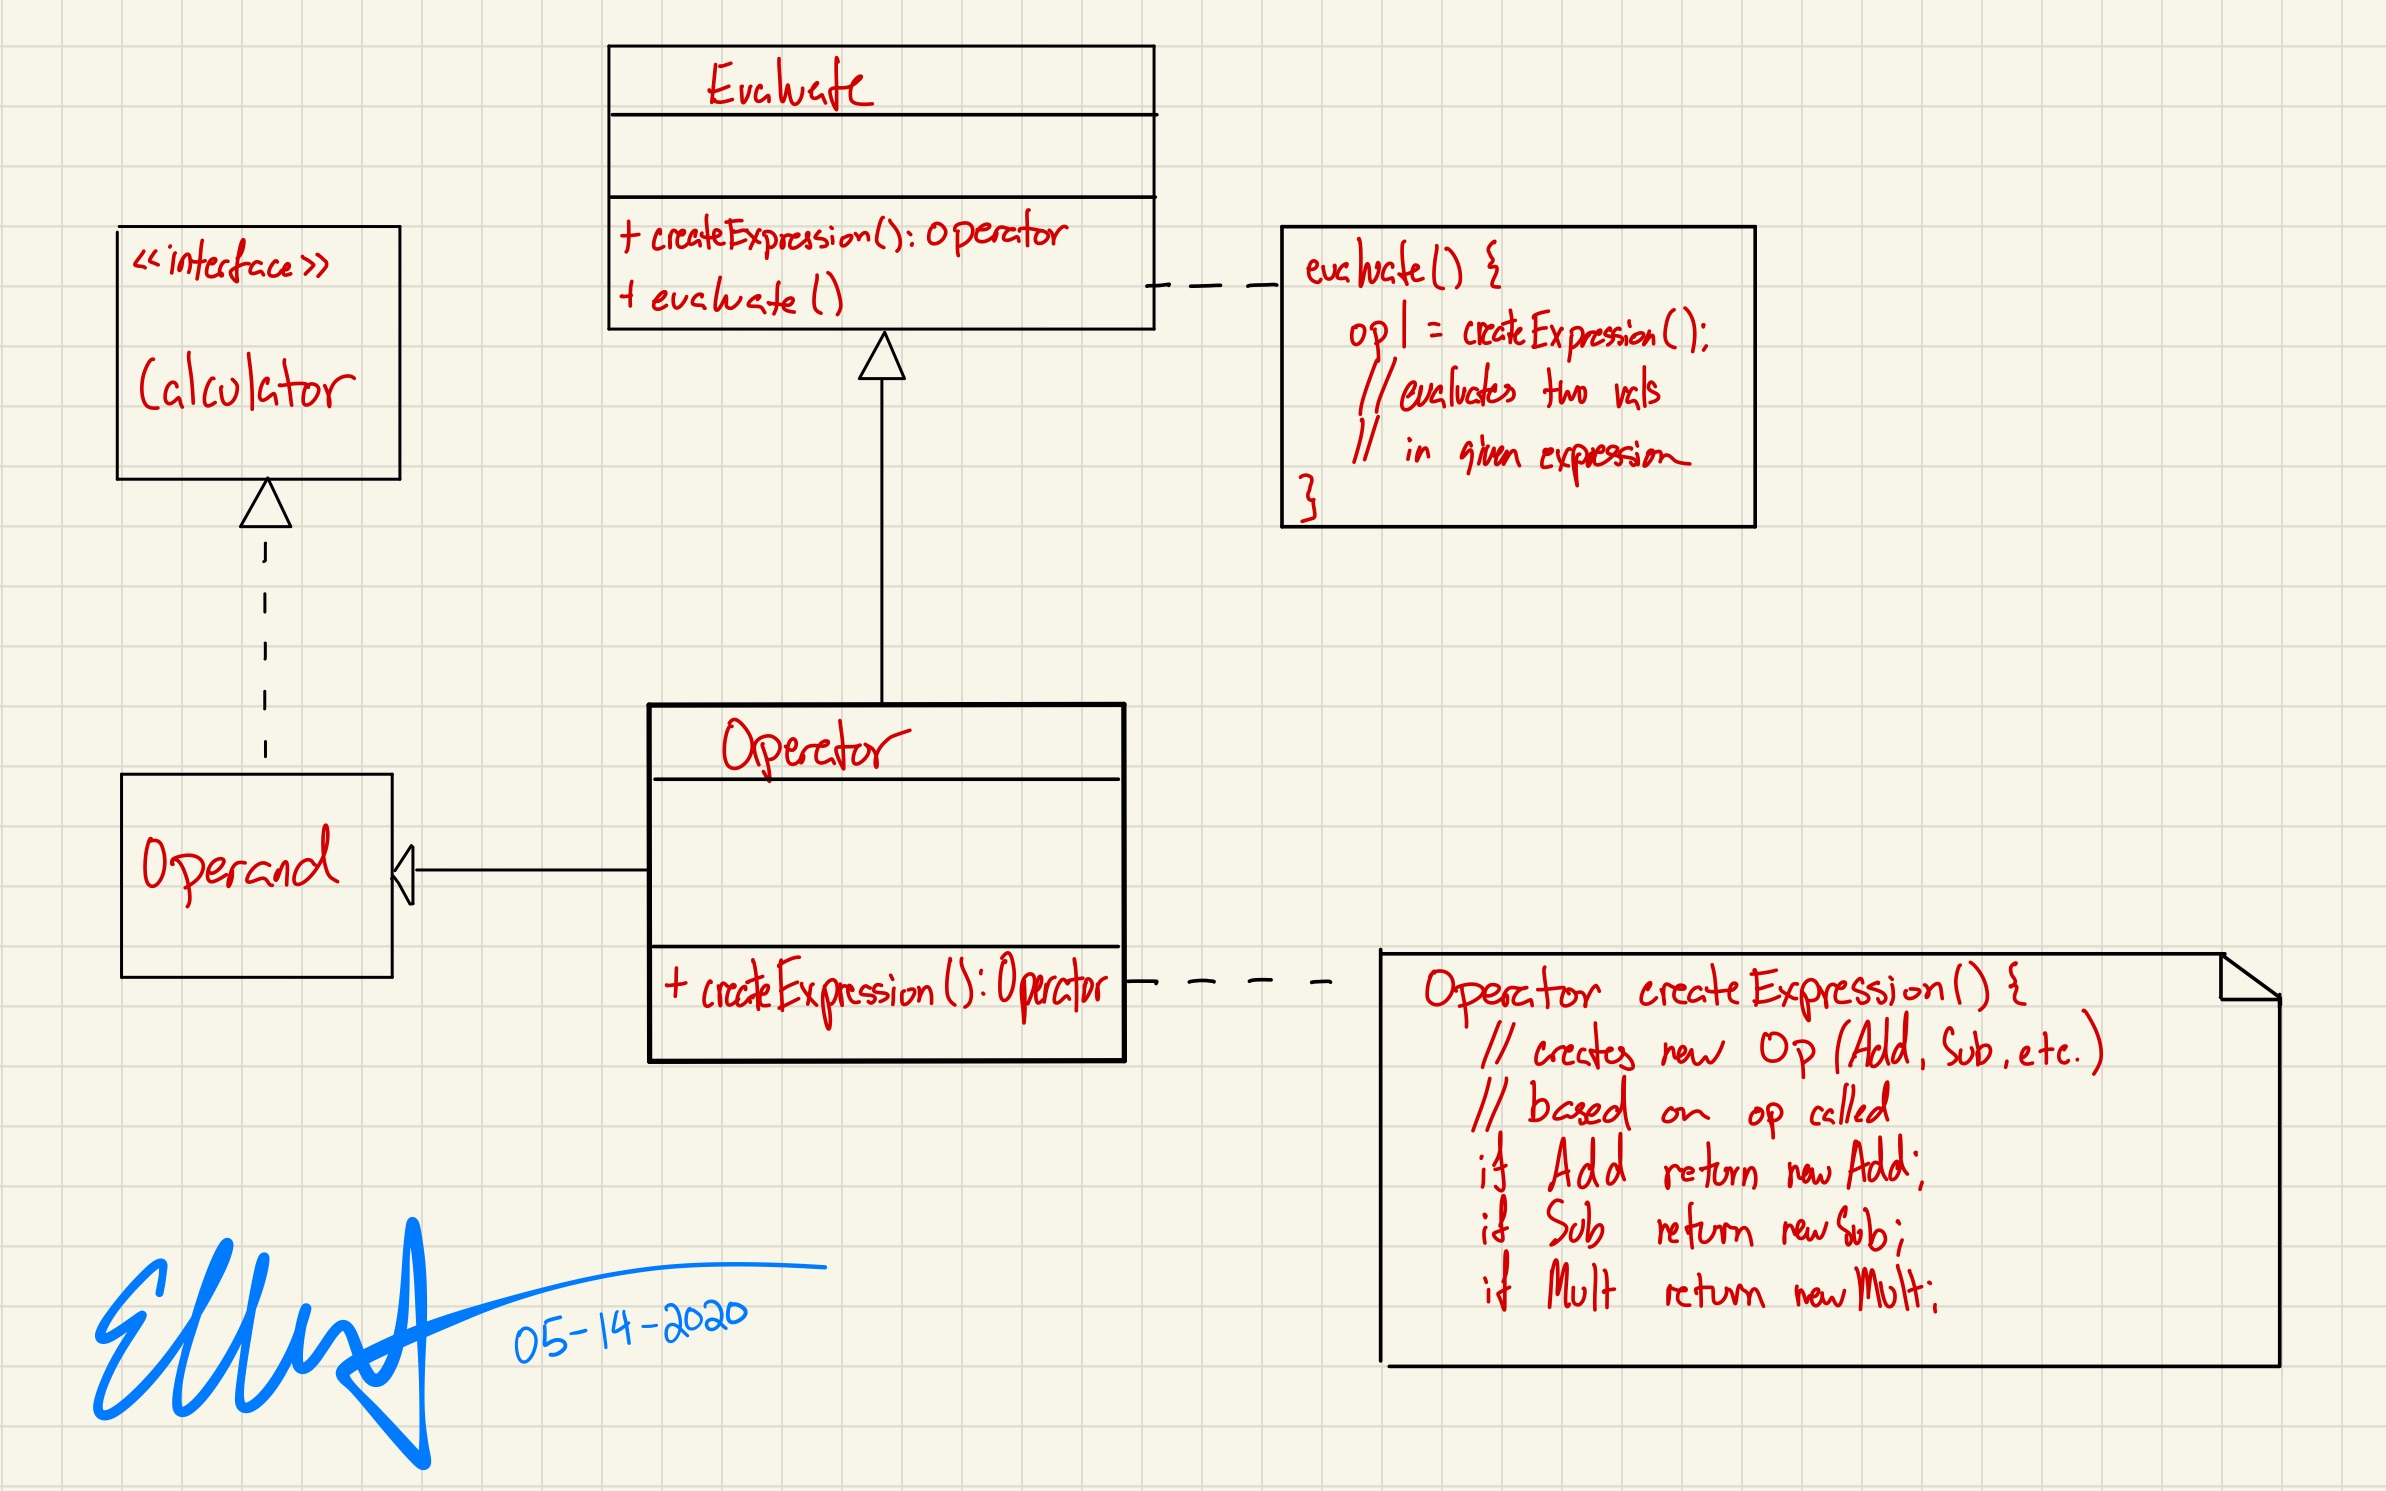 Evaluate
+ createExpression(): Operator
+ evaluate()
<<interface>>
Calculator
evaluate() {
op1 = createExpression();
// evaluates two vals
// in given expression
}
Operator
+ createExpression(): Operator
Operand
Operator createExpression() {
// creates new Op (Add, Sub, etc.)
// based on op called
if Add return new Add;
if Sub return new Sub;
if Mult return new Mult;
05-14-2020